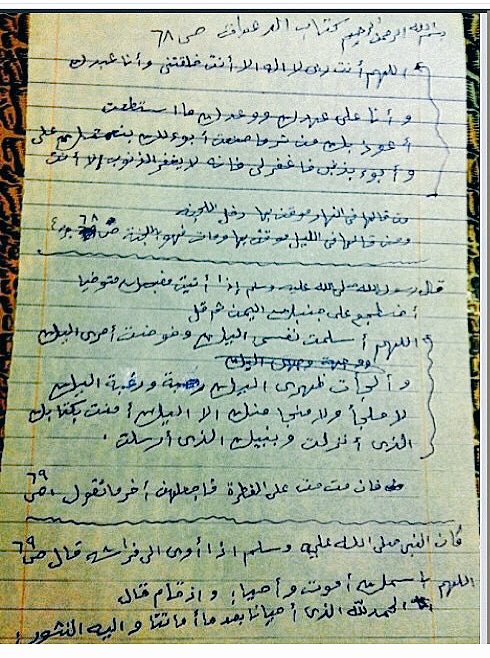 بسم الله الرحمن الرحيم كتاب الدعوات ص ٦٨
اللهم أنت ربى لا اله الا أنت خلقتنى وأنا عبدك
وأنا على عهدك ووعدك ما استطعت
أعوذ بك من شر ما صنعت أبوء لك بنعمتك على
وأبوء بذنبى فاغفر لى فانه لا يغفر الذنوب الا أنت
من قالها فى النهار موقن بها دخل الجنة
ومن قالها فى الليل موقن بها ومات فهو الجنة ص ٦٨
قال رسول الله صلى الله عليه وسلم إذا أتيت مضجعك فتوضأ
أضطجع على جنبك الايمن ثم قل
اللهم أسلمت نفسى اليك وفوضت أمرى اليك
ووجهت وجهى اليك
وألجأت ظهرى اليك رهبة ورغبة اليك
لا ملجأ ولا منجا منك الا اليك أمنت بكتابك
الذى أنزلت وبنبيك الذى أرسلت
فان مت مت على الفطرة فاجعلهن أخر ما تقول ص ٦٩
كان النبى صلى الله عليه وسلم اذا أوى الى فراشه قال ص ٦٩
اللهم باسمك أموت وأحيا، واذ قام قال
الحمد لله الذى أحيانا بعد ما أماتنا واليه النشور